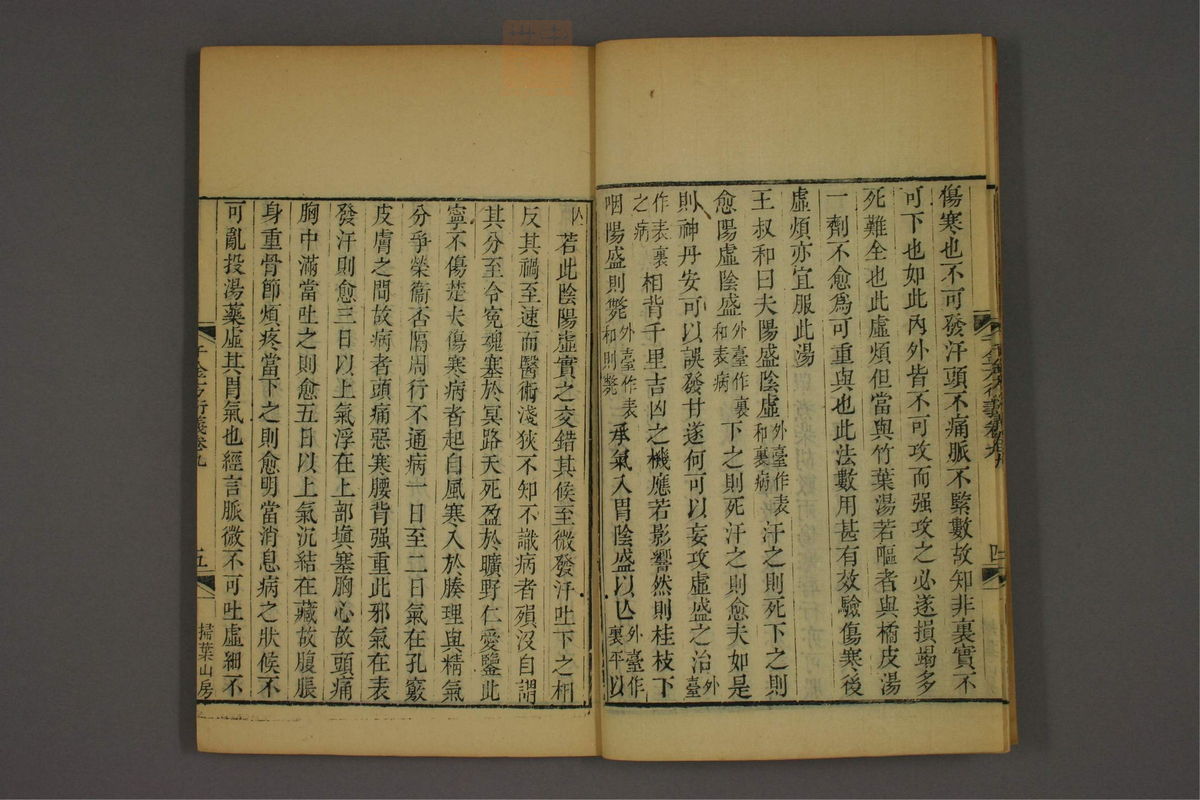 傷寒也不可發汗頭不痛脈不緊數故知非裏實不
可下也如此內外皆不可攻而强攻之必遂損竭多
死難全也此虛煩但當與竹葉湯若嘔者與橘皮湯
一劑不愈爲可重與也此法數用甚有效驗傷寒後
虛煩亦宜服此湯
王叔和曰夫陽盛陰虛外臺作表和裏病汗之則死下之則
愈陽虛陰盛外臺作裏和表病下之則死汗之則愈夫如是
則神丹安可以誤發甘遂何可以妄攻虛盛之治外臺
作表裏之病相背千里吉凶之機應若影響然則桂枝下
咽陽盛則斃外臺作表和則斃承氣入胃陰盛以亾外臺作裏平以
千金方衍義卷九
四
亾若此陰陽虛實之交錯其候至微發汗吐下之相
反其禍至速而醫術淺狹不知不識病者殞沒自謂
其分至令寃魂塞於冥路夭死盈於曠野仁愛鑒此
寧不傷楚夫傷寒病者起自風寒入於腠理與精氣
分爭榮衞否隔周行不通病一日至二日氣在孔竅
皮膚之間故病者頭痛惡寒腰背强重此邪氣在表
發汗則愈三日以上氣浮在上部塡塞胸心故頭痛
胸中滿當吐之則愈五日以上氣沉結在藏故腹脹
身重骨節煩疼當下之則愈明當消息病之狀候不
可亂投湯藥虛其胃氣也經言脈微不可吐虛細不
千金方衍義卷九
五
掃葉山房